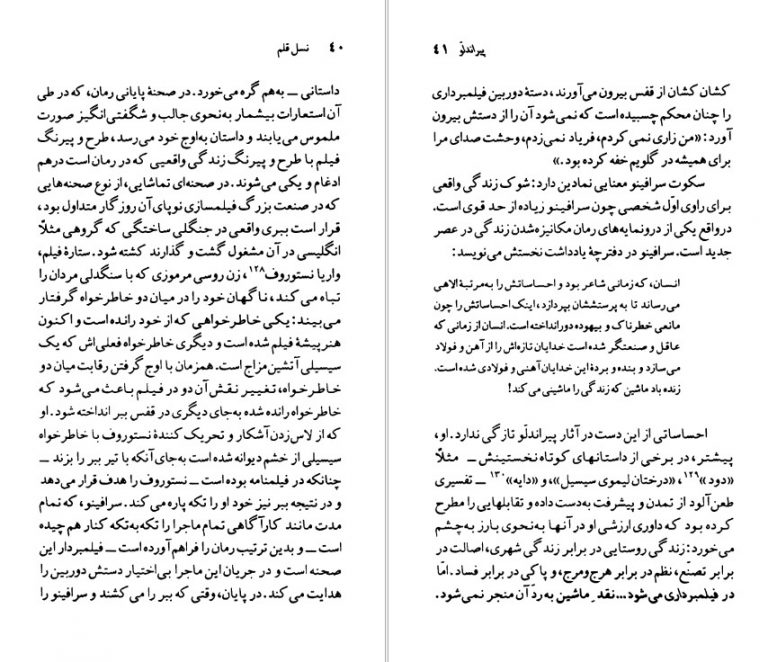 ۴۰ نسل قلم
داستانی ــ به‌هم گره می‌خورد. در صحنهٔ پایانی رمان، که در طی
آن استعارات بیشمار به‌نحوی جالب و شگفتی‌انگیز صورت
ملموس می‌یابند و داستان به‌اوج خود می‌رسد، طرح و پیرنگ
فیلم با طرح و پیرنگ زندگی واقعیی که در رمان است درهم
ادغام و یکی می‌شوند. در صحنه‌ای تماشایی، از نوع صحنه‌هایی
که در صنعت بزرگ فیلمسازی نوپای آن روزگار متداول بود،
قرار است ببری واقعی در جنگلی ساختگی که گروهی مثلاً
انگلیسی در آن مشغول گشت و گذارند کشته شود. ستارهٔ فیلم،
واریا نستوروف۱۲۸، زن روسی مرموزی که با سنگدلی مردان را
تباه می‌کند، ناگهان خود را در میان دو خاطرخواه گرفتار
می‌بیند: یکی خاطرخواهی که از خود رانده است و اکنون
هنرپیشهٔ فیلم شده است و دیگری خاطرخواه فعلی‌اش که یک
سیسیلی آتشین‌مزاج است. همزمان با اوج گرفتن رقابت میان دو
خاطرخواه، تغییر نقش آن دو در فیلم باعث می‌شود که
خاطرخواه رانده شده به‌جای دیگری در قفس ببر انداخته شود. او
که از لاس‌زدن آشکار و تحریک کنندهٔ نستوروف با خاطرخواه
سیسیلی از خشم دیوانه شده است به‌جای آنکه با تیر ببر را بزند ــ
چنانکه در فیلمنامه بوده است ــ نستوروف را هدف قرار می‌دهد
و در نتیجه ببر نیز خود او را تکه پاره می‌کند. سرافینو، که تمام
مدت مانند کارآگاهی تمام ماجرا را تکه‌به‌تکه کنار هم چیده
است ــ و بدین ترتیب رمان را فراهم آورده است ــ فیلمبردار این
صحنه است و در جریان این ماجرا بی‌اختیار دستش دوربین را
هدایت می‌کند. در پایان، وقتی که ببر را می‌کشند و سرافینو را
پیراندلّو ۴۱
کشان کشان از قفس بیرون می‌آورند، دستهٔ دوربین فیلمبرداری
را چنان محکم چسبیده است که نمی‌شود آن را از دستش بیرون
آورد: «من زاری نمی‌کردم، فریاد نمی‌زدم، وحشت صدای مرا
برای همیشه در گلویم خفه کرده بود.»
سکوت سرافینو معنایی نمادین دارد: شوک زندگی واقعی
برای راوی اوّل شخصی چون سرافینو زیاده از حد قوی است.
درواقع یکی از درونمایه‌های رمان مکانیزه‌شدن زندگی در عصر
جدید است. سرافینو در دفترچهٔ یادداشت نخستش می‌نویسد:
انسان، که زمانی شاعر بود و احساساتش را به‌مرتبهٔ الاهی
می‌رساند تا به پرستششان بپردازد، اینک احساساتش را چون
مانعی خطرناک و بیهوده دورانداخته است. انسان از زمانی که
عاقل و صنعتگر شده است خدایان تازه‌اش را از آهن و فولاد
می‌سازد و بنده و بردهٔ این خدایان آهنی و فولادی شده است.
زنده باد ماشین که زندگی را ماشینی می‌کند!
احساساتی از این دست در آثار پیراندلّو تازگی ندارد. او،
پیشتر، در برخی از داستانهای کوتاه نخستینش ــ مثلاً
«دود»۱۲۹، «درختان لیموی سیسیل»، و «دایه»۱۳۰ ــ تفسیری
طعن‌آلود از تمدن و پیشرفت به‌دست داده و تقابلهایی را مطرح
کرده بود که داوری ارزشی او در آنها به‌نحوی بارز به‌چشم
می‌خورد: زندگی روستایی در برابر زندگی شهری، اصالت در
برابر تصنّع، نظم در برابر هرج‌ومرج، و پاکی در برابر فساد. امّا
در فیلمبرداری می‌شود... نقدِ ماشین به‌ردّ آن منجر نمی‌شود.